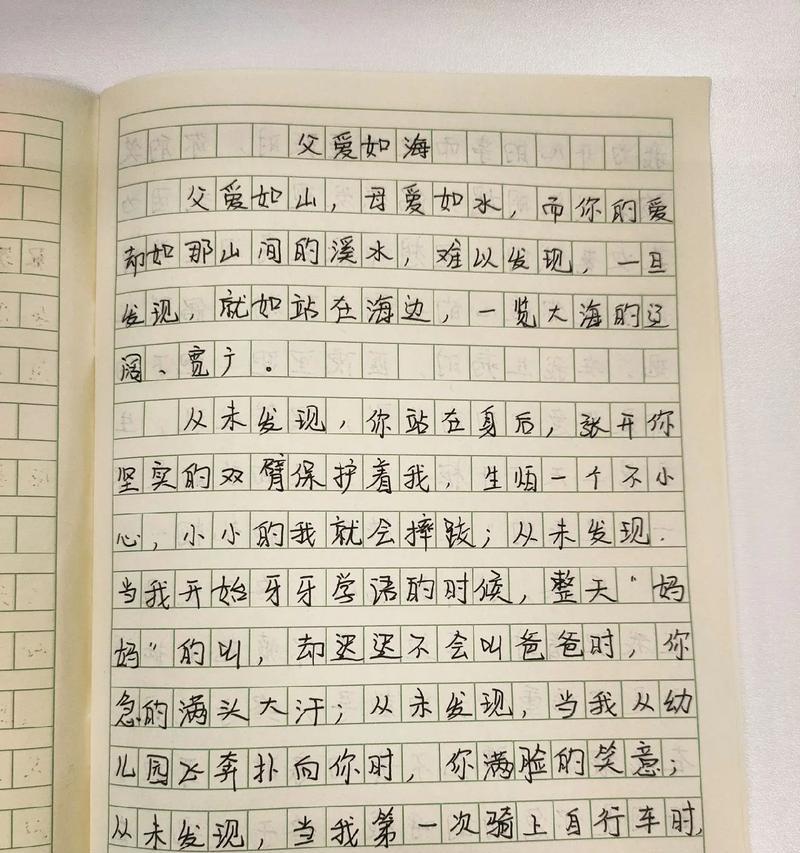 父爱如海
父爱如山，母爱如水，而你的爱
却如那山间的溪水，难以发现，一旦
发现，就如站在海边，一览大海的辽
阔、宽广。
从未发现，你站在身后，张开你
坚实的双臂保护着我，生怕一个不小
心，小小的我就会摔跤；从未发现.
当我开始牙牙学语的时候，整天“妈
妈”的叫，却迟迟不会叫爸爸时，你
急的满头大汗；从未发现，当我从幼
儿园飞奔扑向你时，你满脸的笑意；
从未发现，当我第一次骑上自行车时，